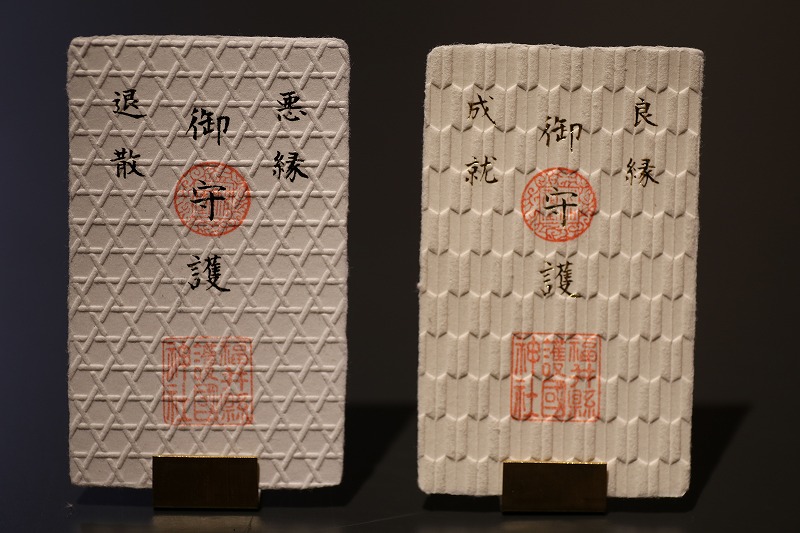 悪縁
御守護
退散
福井縣
護國
神社
良縁
御守護
成就
福井縣
護國
神社